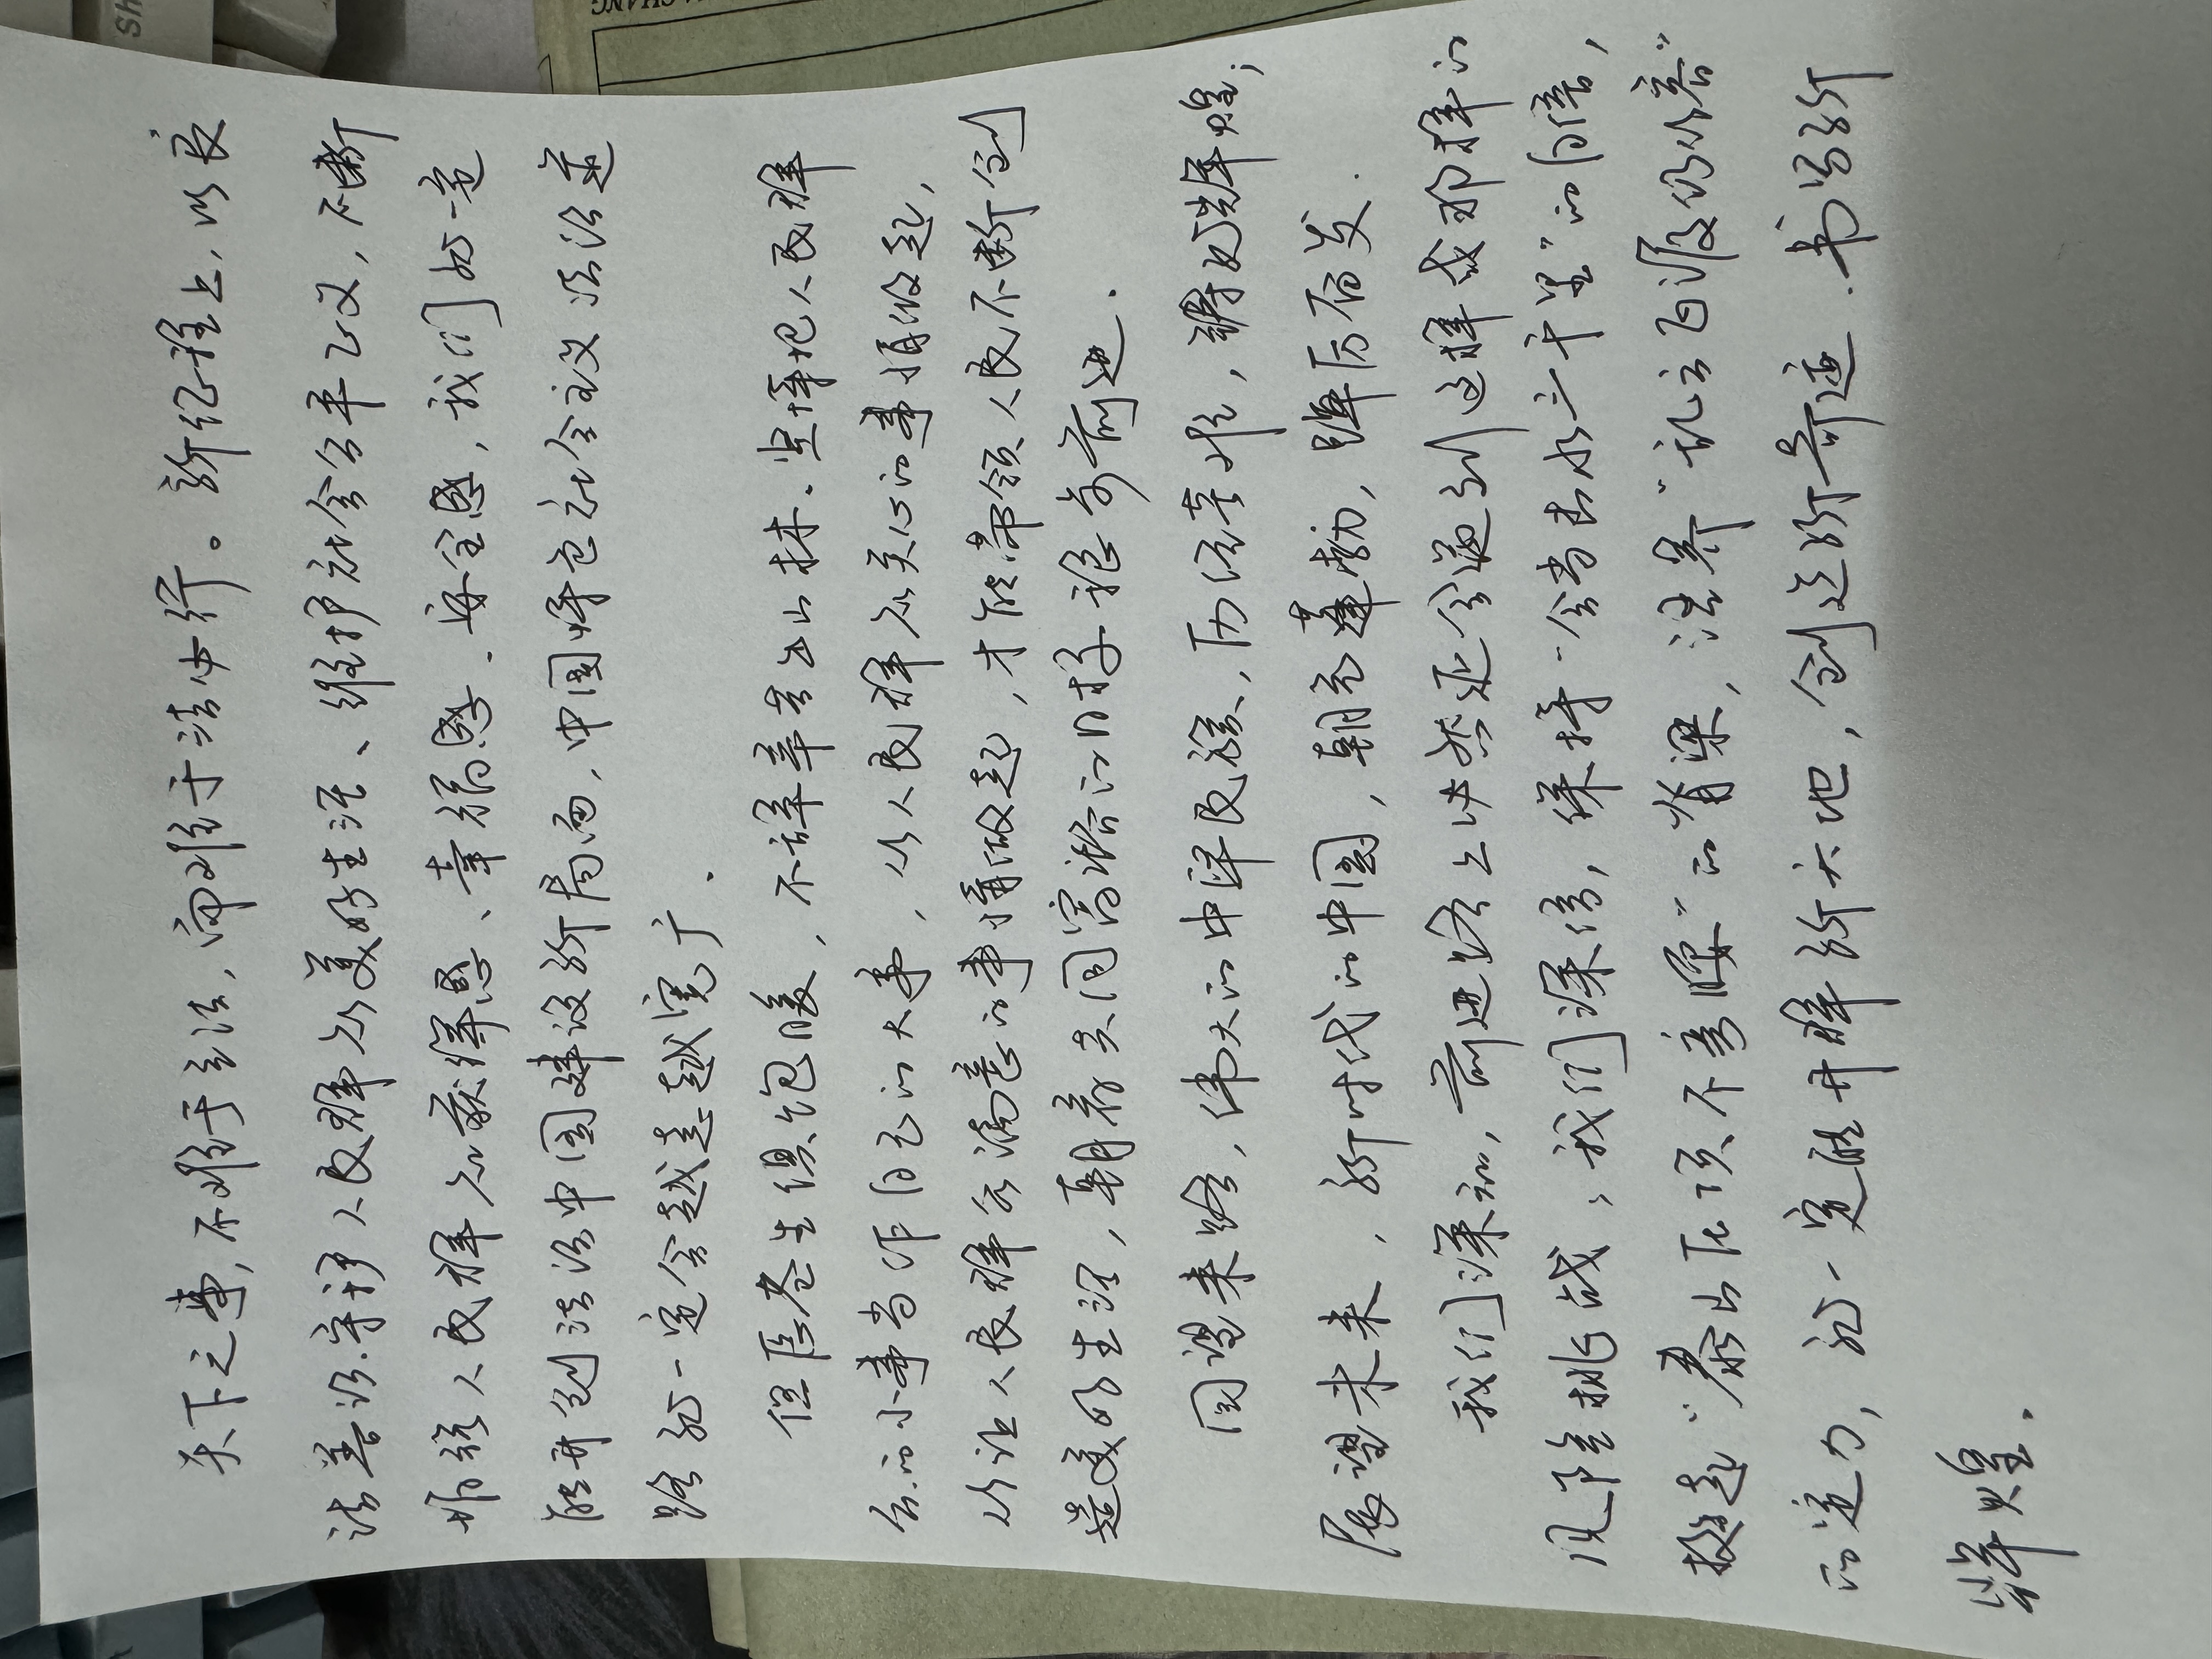 天下之事,不难于立法,而难于法必行。新征程上,以良
法善治守护人民群众美好生活、维护社会公平正义,不断
增强人民群众获得感、幸福感、安全感,我们就一定
能开创法治中国建设新局面,中国特色社会主义法治道
路就一定会越走越宽广.
但愿苍生俱饱暖,不辞辛苦出山林.坚持把人民群
众的小事当作自己的大事,从人民群众关心的事情做起,
从让人民群众满意的事情做起,才能带领人民不断创
造美好生活,朝着共同富裕的目标稳步前进.
回望来路,伟大的中华民族,历经苦难,铸就辉煌;
展望未来,新时代的中国,朝气蓬勃,踔厉奋发.
我们深知,前进路上必然还会遇到这样或那样的
风险挑战;我们深信,保持“会当击水三千里”的自信,
挺起“泰山压顶不弯腰”的脊梁,涵养“乱云飞渡仍从容”
的定力,就一定能开辟新天地,创造新奇迹.书写新
辉煌.
SH